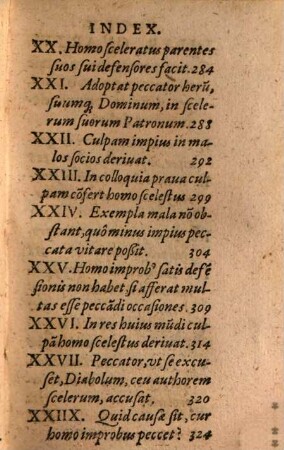 INDEX.
XX. Homo sceleratus parentes
suos sui defensores facit. 284
XXI. Adoptat peccator herū,
suumq́; Dominum, in scele-
rum suorum Patronum. 288
XXII. Culpam impius in ma-
los socios deriuat. 292
XXIII. In colloquia praua cul-
pam cōfert homo scelestus 299
XXIV. Exempla mala nō ob-
stant, quô minus impius pec-
cata vitare poßit. 304
XXV. Homo improb⁹ satis defē
sionis non habet si afferat mul-
tas esse peccādi occasiones. 309
XXVI. In res huius mūdi cul-
pā homo scelestus deriuat. 314
XXVII. Peccator, vt se excu-
set, Diabolum, ceu authorem
scelerum, accusat, 320
XXIIX. Quid causæ sit, cur
homo improbus peccet? 324